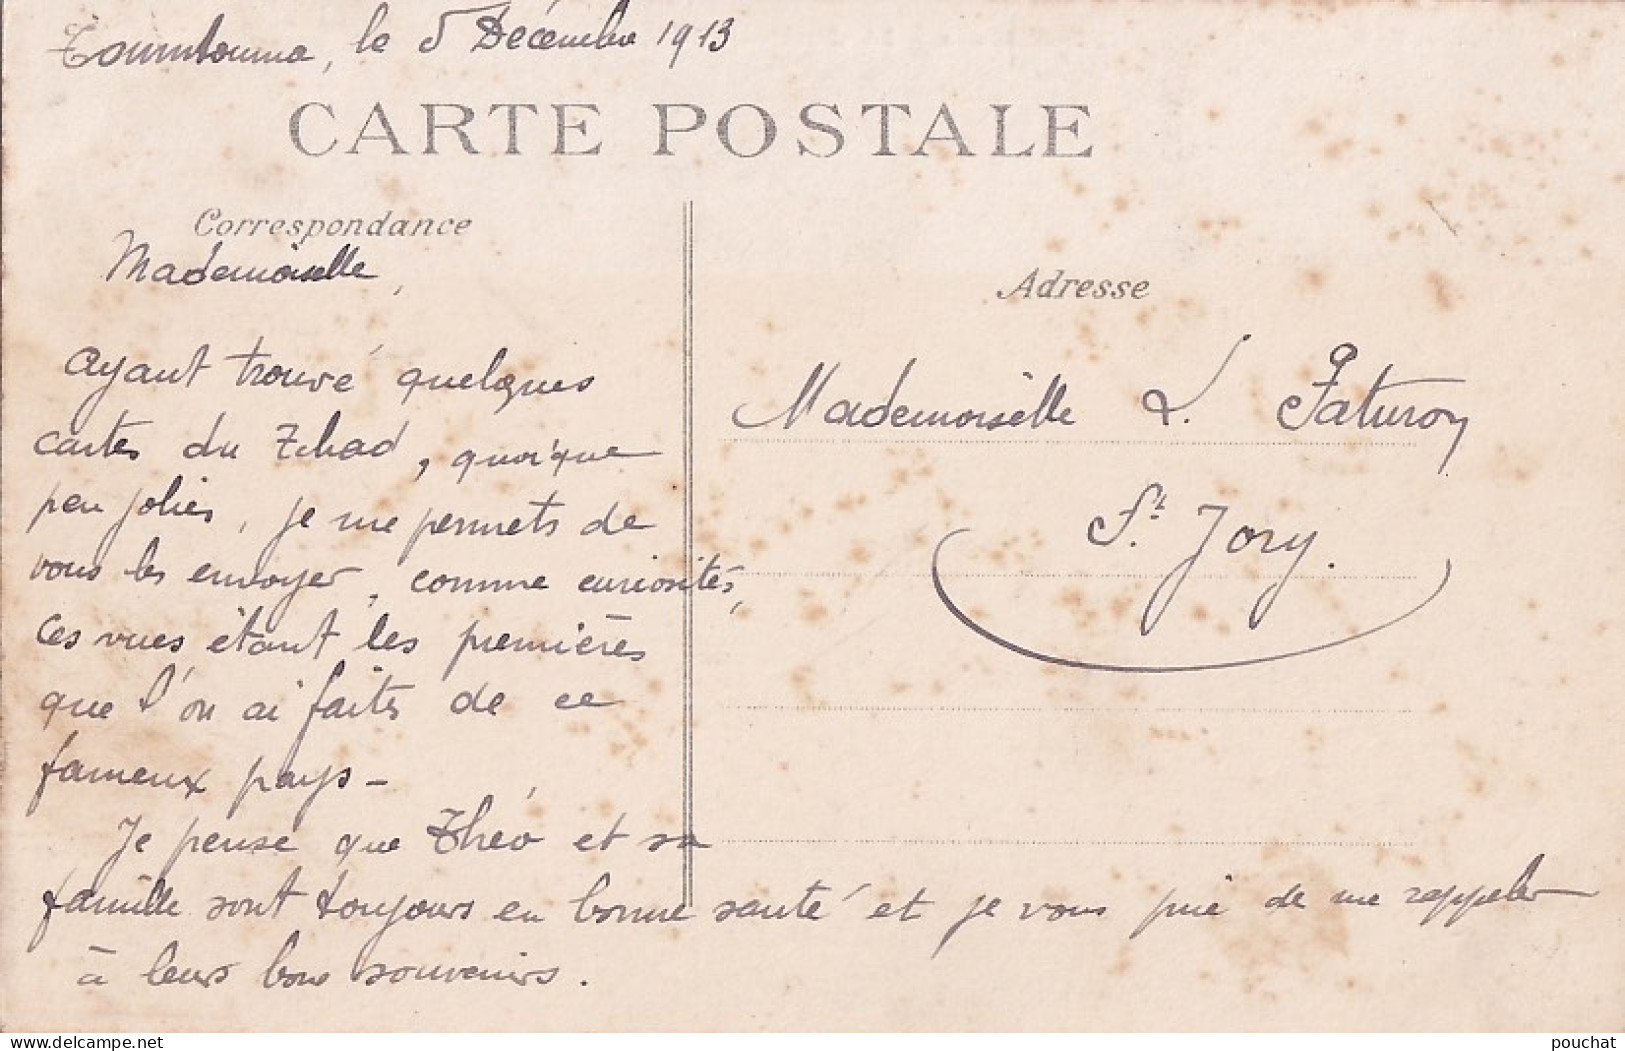 Tourntouma, le 5 Décembre 1913
CARTE POSTALE
Correspondance
Mademoiselle,
Ayant trouvé quelques
cartes du Tchad, quoique
peu jolies, je me permets de
vous les envoyer, comme curiosités,
ces vues étant les premières
que l'on ai faites de ce
fameux pays -
Je pense que Théo et sa
famille sont toujours en bonne santé et je vous prie de me rappeler
à leurs bons souvenirs.
Adresse
Mademoiselle L. Faturoy
St. Jory.
pouchat